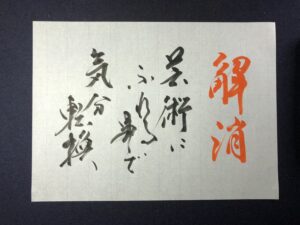 解消
芸術に
ふれる事で
気分転換、